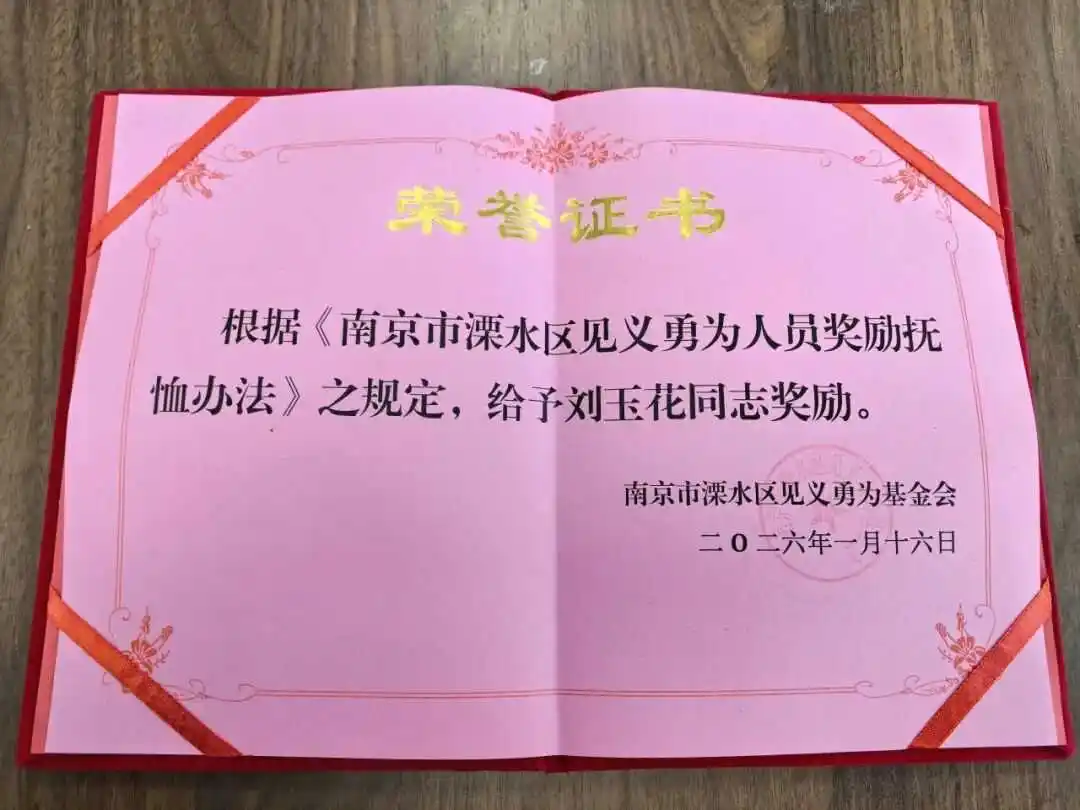 荣誉证书
根据《南京市溧水区见义勇为人员奖励抚
恤办法》之规定，给予刘玉花同志奖励。
南京市溧水区见义勇为基金会
二O二六年一月十六日